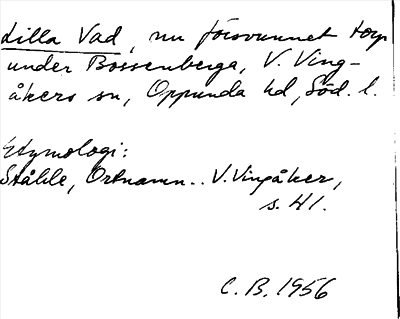 Lilla Vad, nu försvunnet torp
under Bossenberga, V. Ving-
åkers sn, Oppunda hd, Söd. l.
Etymologi:
Ståhle, Ortnamn.. V. Vingåker,
s. 41.
C. B. 1956